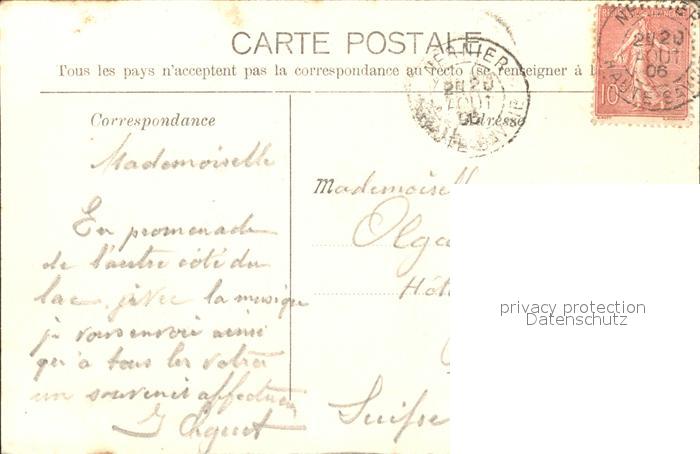 CARTE POSTALE
Tous les pays n'acceptent pas la correspondance au recto (se renseigner à l
Correspondance
Adresse
NERNIER
20
AOUT
06
HAUTE-SAVOIE
10
Mademoiselle
En promenade
de l'autre côté du
lac, avec la musique
je vous envoie ainsi
qu'à tous les vôtres
un souvenir affectueux
Mademoiselle
Olga
Hôt
Suisse
privacy protection
Datenschutz